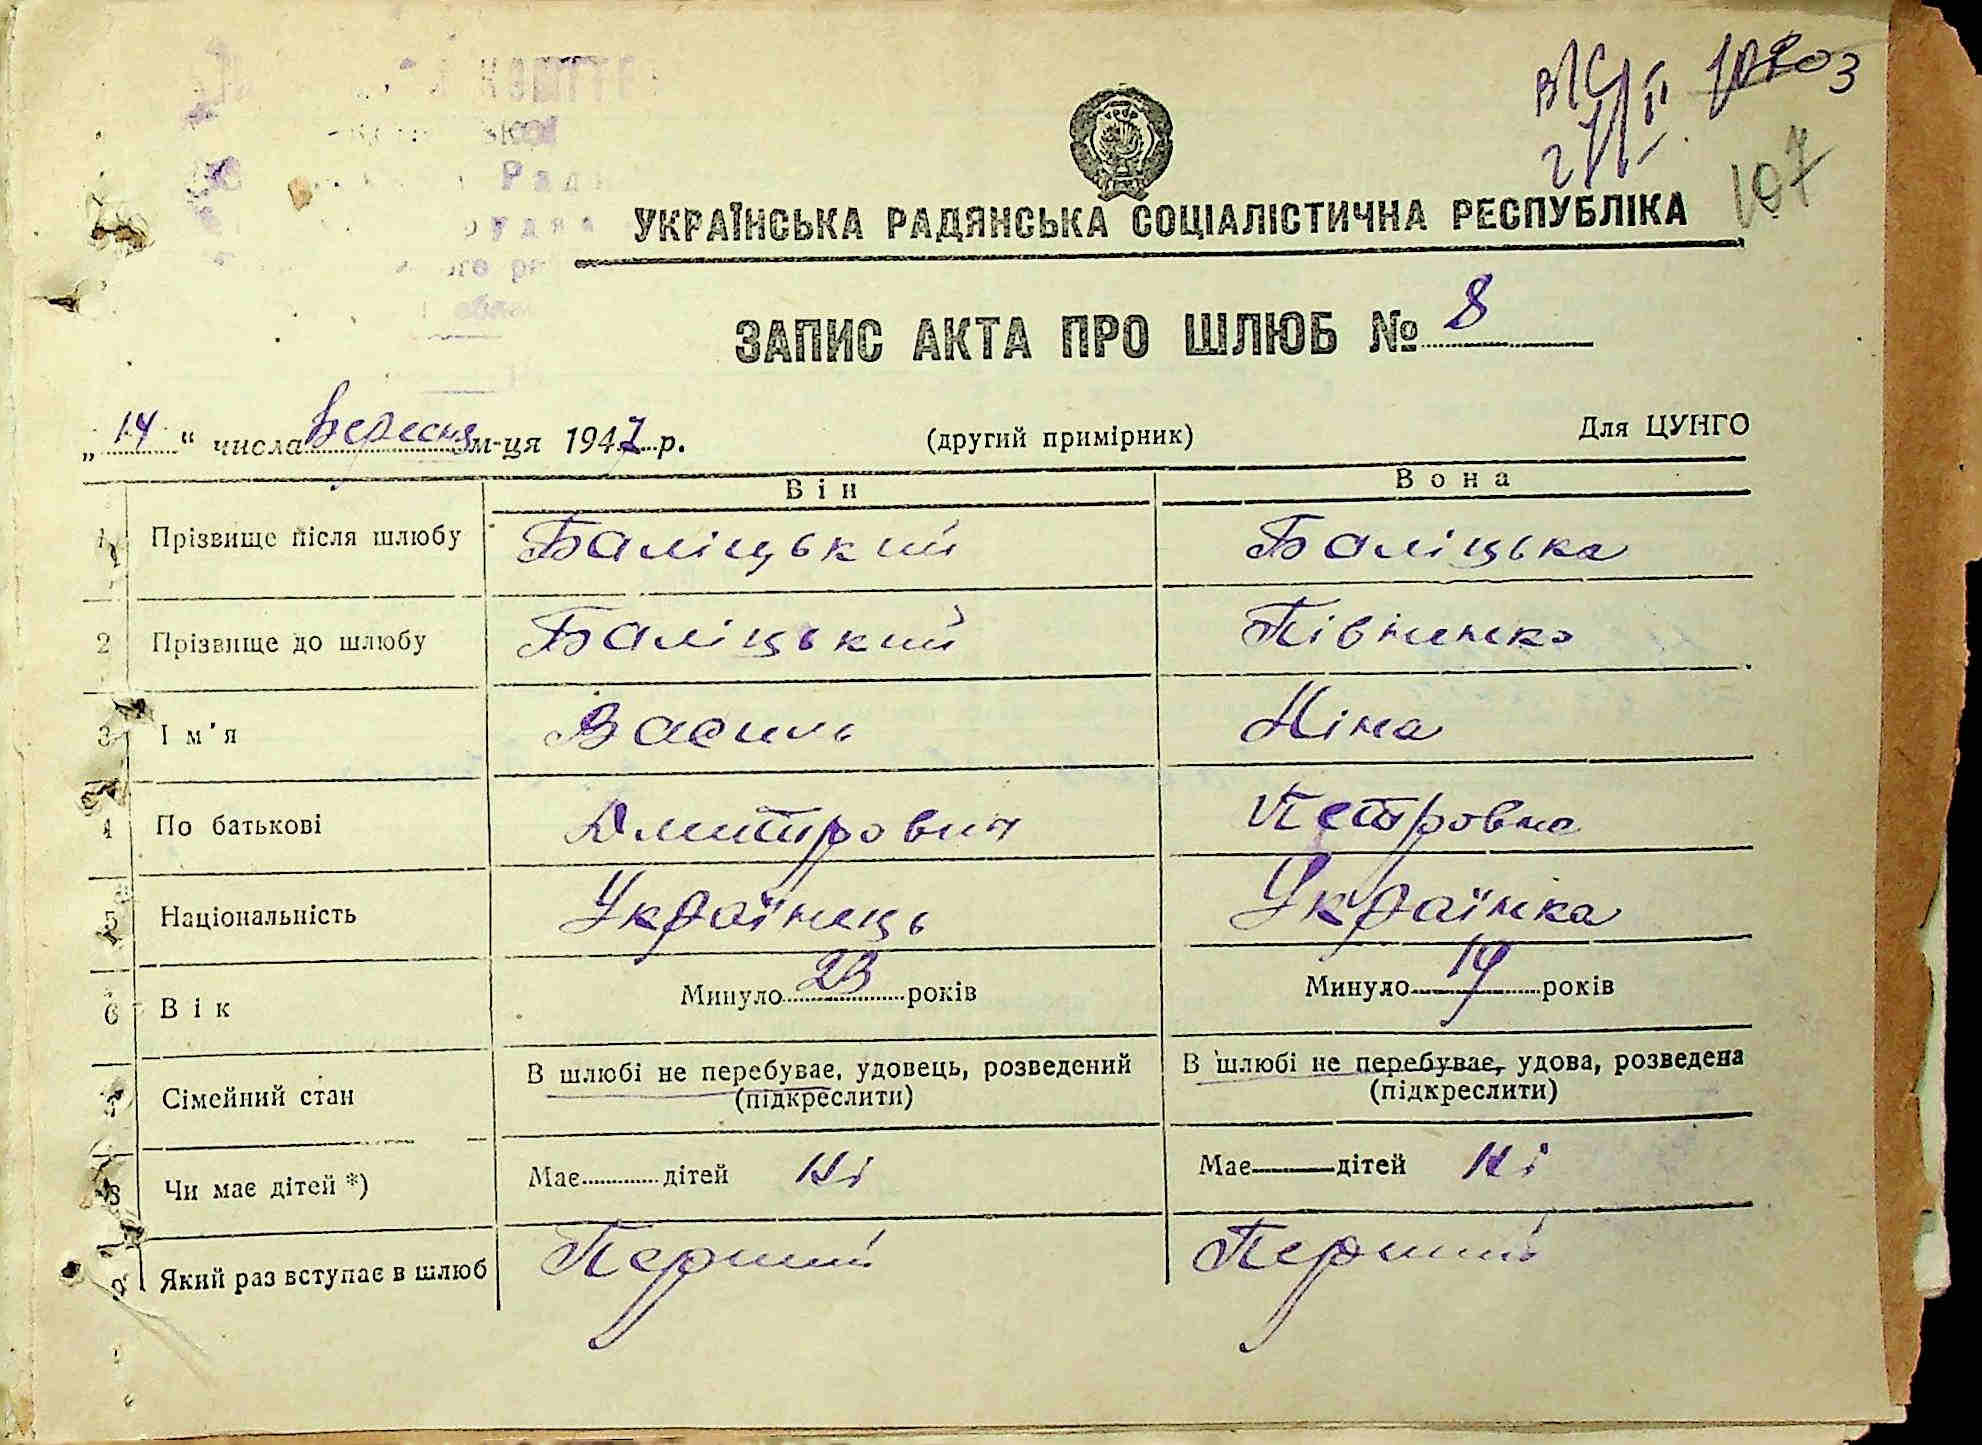 107
УКРАЇНСЬКА РАДЯНСЬКА СОЦІАЛІСТИЧНА РЕСПУБЛІКА
ЗАПИС АКТА ПРО ШЛЮБ № 8
„14“ числа Вересня м-ця 1947 р. (другий примірник) Для ЦУНГО
Він Вона
1 Прізвище після шлюбу Баліцький Баліцька
2 Прізвище до шлюбу Баліцький Півненко
3 Ім'я Василь Ніна
4 По батькові Дмитрович Петровна
5 Національність Українець Українка
6 Вік Минуло 23 років Минуло 19 років
7 Сімейний стан В шлюбі не перебуває, удовець, розведений В шлюбі не перебуває, удова, розведена
(підкреслити) (підкреслити)
8 Чи має дітей *) Має дітей Ні Має дітей Ні
9 Який раз вступає в шлюб Перший Перший